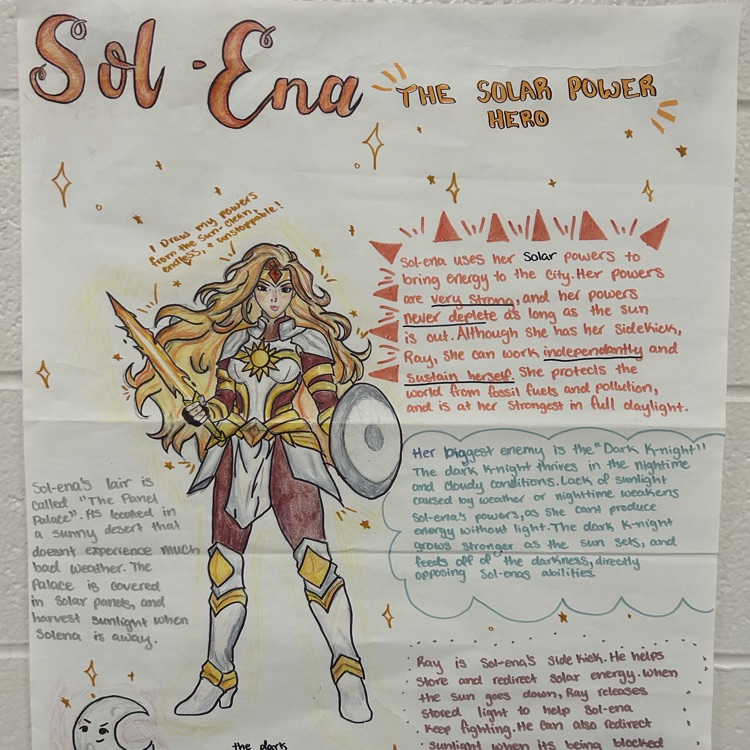 Sol-Ena
THE SOLAR POWER
HERO
I Draw my powers
from the sun-clean,
endless, & unstoppable!
Sol-ena uses her solar powers to
bring energy to the city. Her powers
are very strong, and her powers
never deplete as long as the sun
is out. Although she has her sidekick,
Ray, she can work independantly and
sustain herself. She protects the
world from fossil fuels and pollution,
and is at her strongest in full daylight.
Her biggest enemy is the "Dark K-night"
The dark K-night thrives in the nightime
and cloudy conditions. Lack of sunlight
caused by weather or nighttime weakens
Sol-ena's powers, as she cant produce
energy without light. The dark K-night
grows stronger as the sun sets, and
feeds off of the darkness, directly
opposing Sol-enas abilities
Sol-ena's lair is
called "The Panel
Palace". Its located in
a sunny desert that
doesnt experience much
bad weather. The
Palace is covered
in solar panels, and
harvest sunlight when
Solena is away.
Ray is Sol-ena's side kick. He helps
store and redirect solar energy. When
the sun goes down, Ray releases
stored light to help Sol-ena
keep fighting. He can also redirect
sunlight when its being blocked
the dark